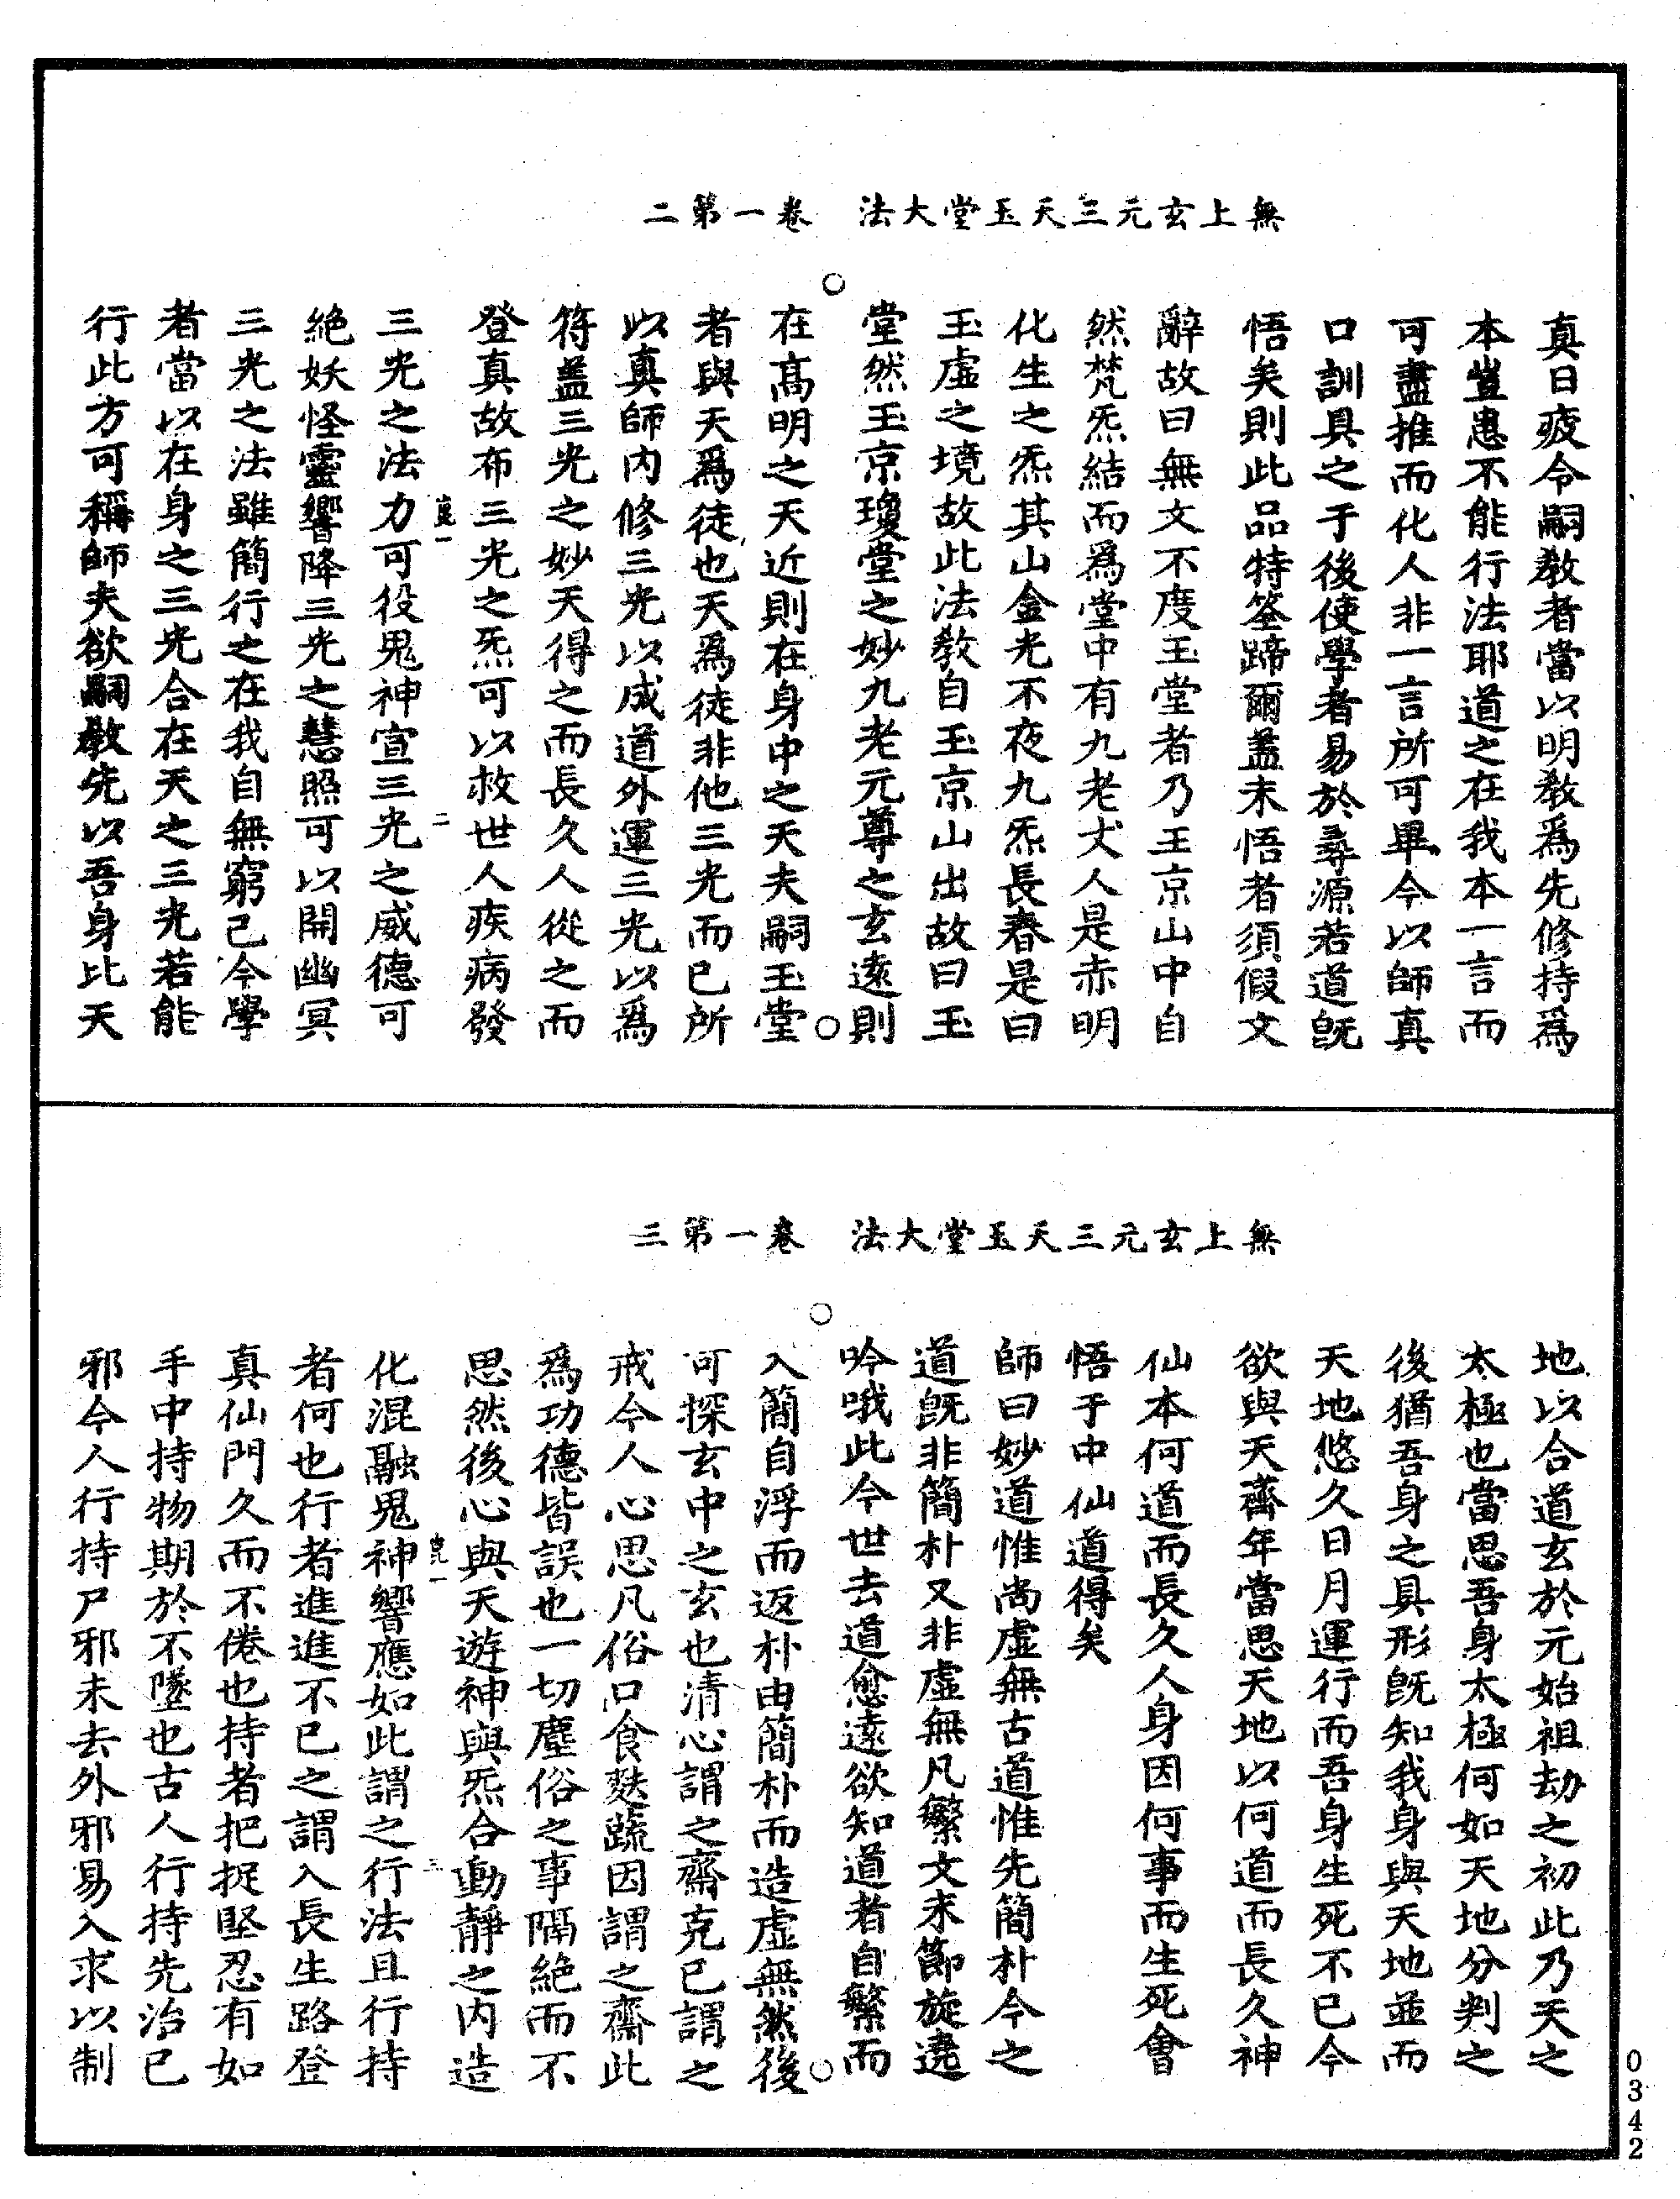 無上玄元三天玉堂大法　卷一第二
真日疲令嗣教者當以明教爲先修持爲
本豈患不能行法耶道之在我本一言而
可盡推而化人非一言所可畢今以師真
口訓具之于後使學者易於尋源若道旣
悟矣則此品特筌蹄爾蓋未悟者須假文
辭故曰無文不度玉堂者乃玉京山中自
然梵炁結而爲堂中有九老丈人是赤明
化生之炁其山金光不夜九炁長春是曰
玉虛之境故此法教自玉京山出故曰玉
堂然玉京瓊堂之妙九老元尊之玄遠則
在高明之天近則在身中之天夫嗣玉堂
者與天爲徒也天爲徒非他三光而已所
以真師内修三光以成道外運三光以爲
符蓋三光之妙天得之而長久人從之而
登真故布三光之炁可以救世人疾病發
二
三光之法力可役鬼神宣三光之威德可
絕妖怪靈響降三光之慧照可以開幽冥
三光之法雖簡行之在我自無窮已今學
者當以在身之三光合在天之三光若能
行此方可稱師夫欲嗣教先以吾身比天
無上玄元三天玉堂大法　卷一第三
地以合道玄於元始祖劫之初此乃天之
太極也當思吾身太極何如天地分判之
後猶吾身之具形旣知我身與天地並而
天地悠久日月運行而吾身生死不已今
欲與天齊年當思天地以何道而長久神
仙本何道而長久人身因何事而生死會
悟于中仙道得矣
師曰妙道惟尚虛無古道惟先簡朴今之
道旣非簡朴又非虛無凡繁文末節旋遶
吟哦此今世去道愈遠欲知道者自繁而
入簡自浮而返朴由簡朴而造虛無然後
可探玄中之玄也清心謂之齋克已謂之
戒今人心思凡俗口食麩蔬因謂之齋此
爲功德皆誤也一切塵俗之事隔絕而不
思然後心與天遊神與炁合動靜之内造
三
化混融鬼神響應如此謂之行法且行持
者何也行者進進不已之謂入長生路登
真仙門久而不倦也持者把捉堅忍有如
手中持物期於不墜也古人行持先治已
邪今人行持尸邪未去外邪易入求以制
0342